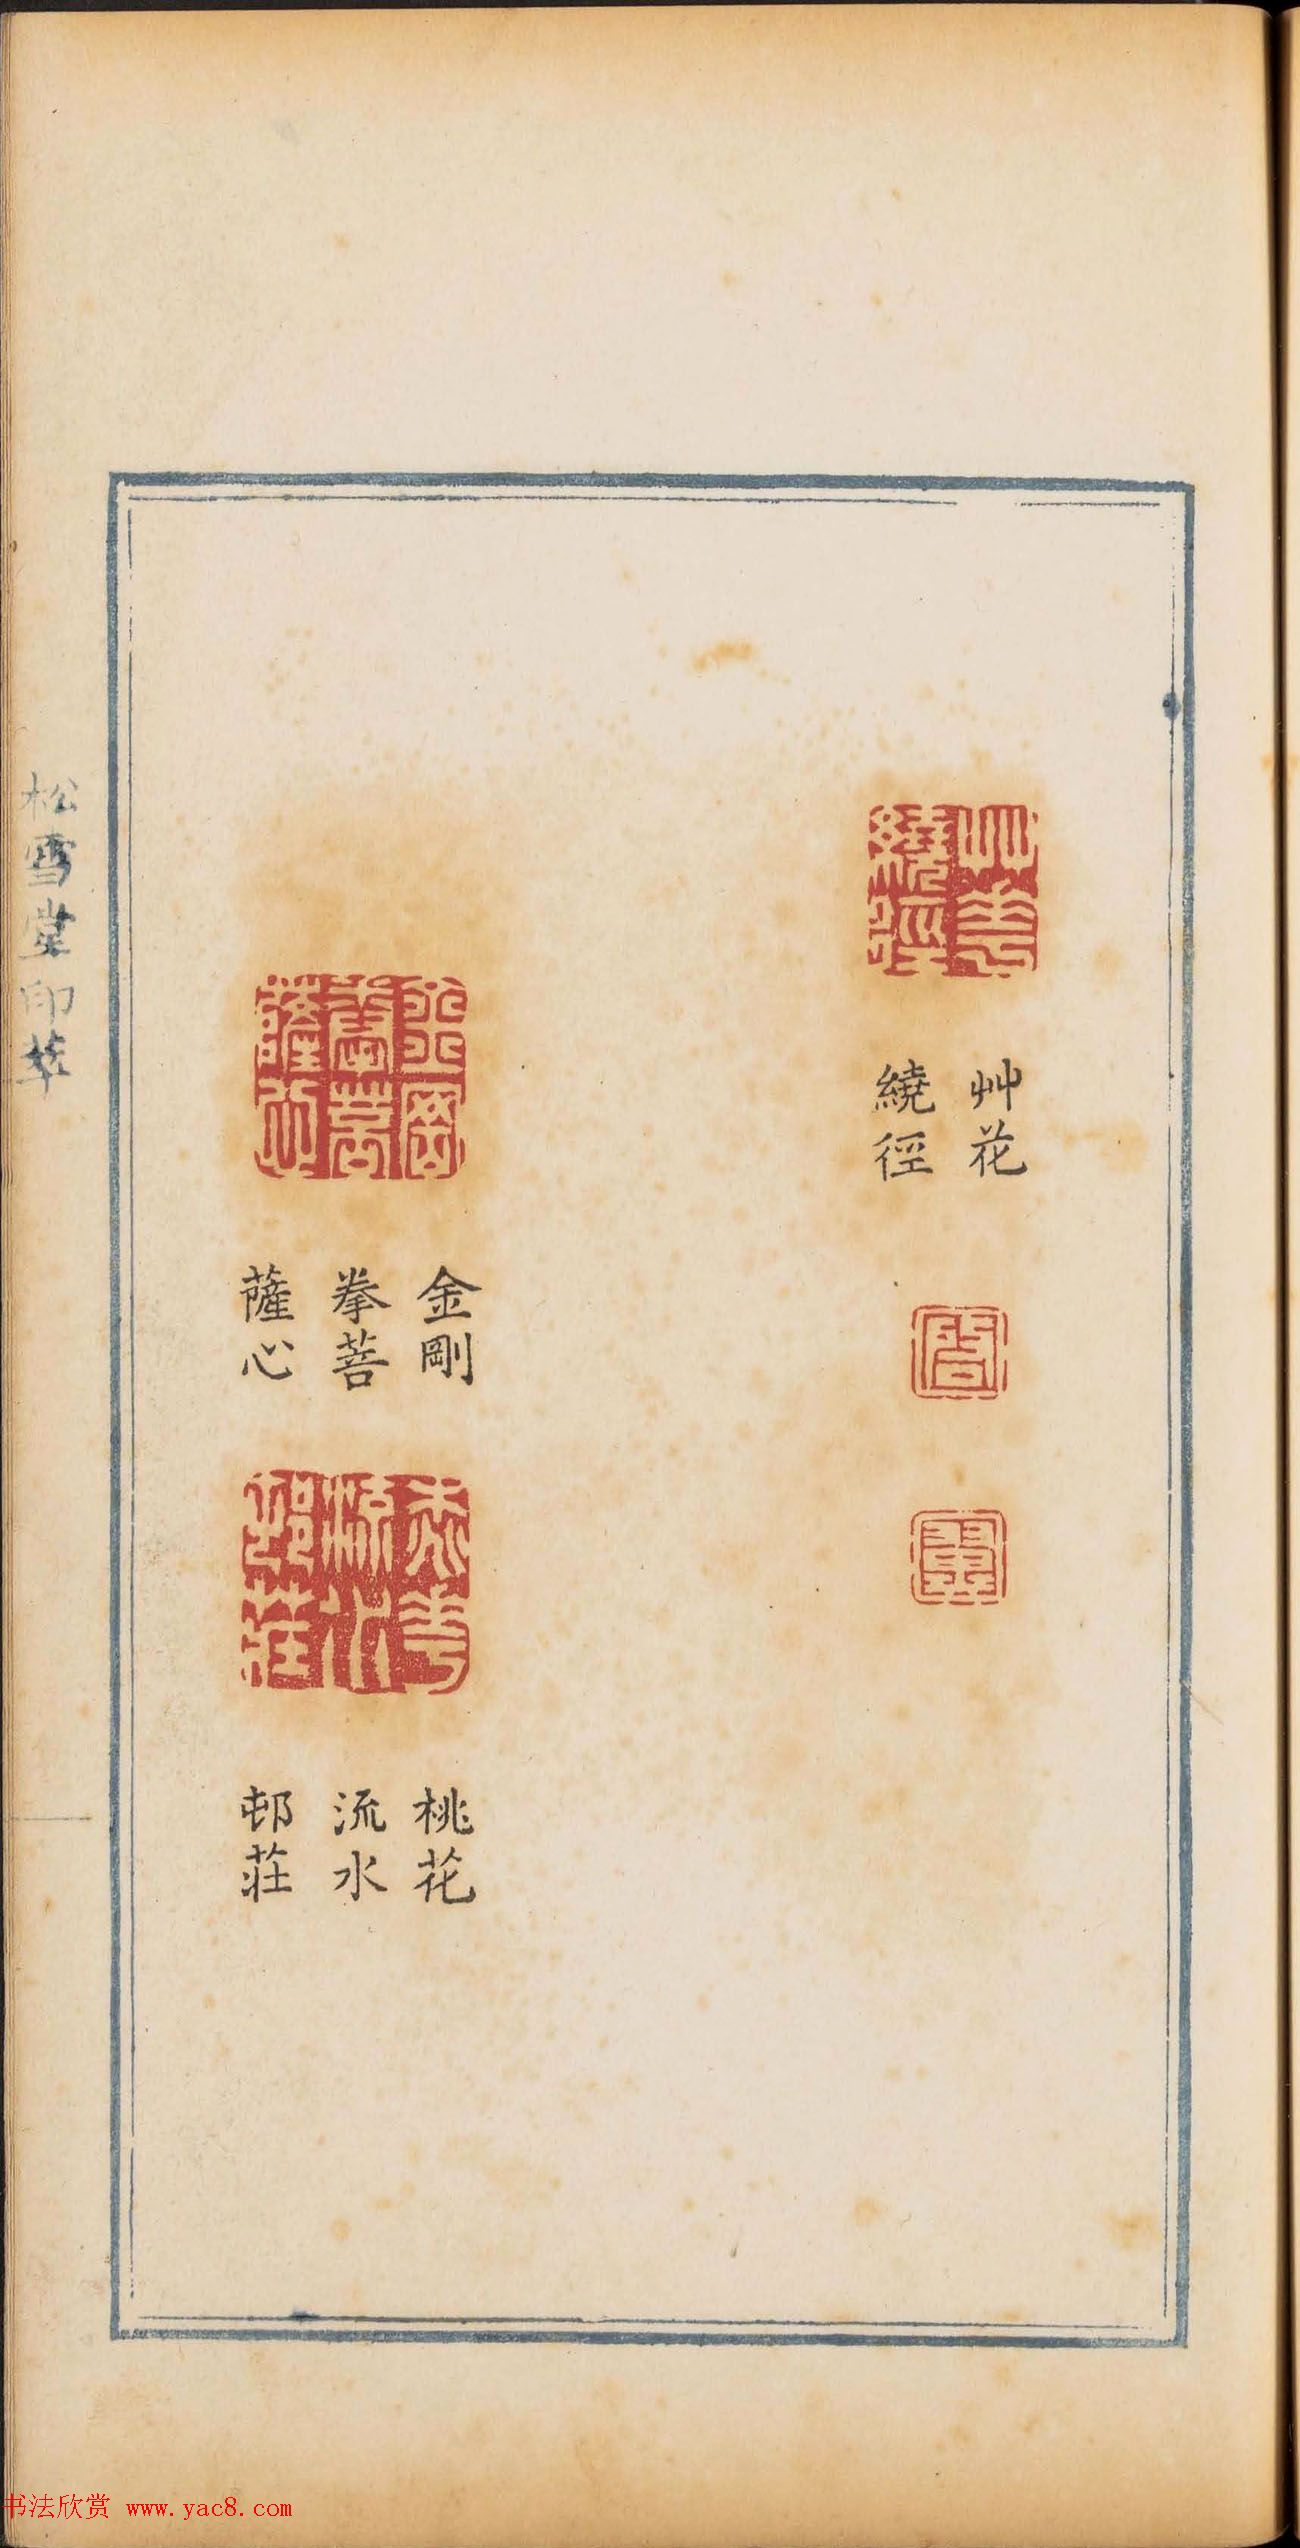 艸花
繞徑
金剛
拳菩
薩心
桃花
流水
邨莊
松雪堂印萃
书法欣赏 www.yac8.com